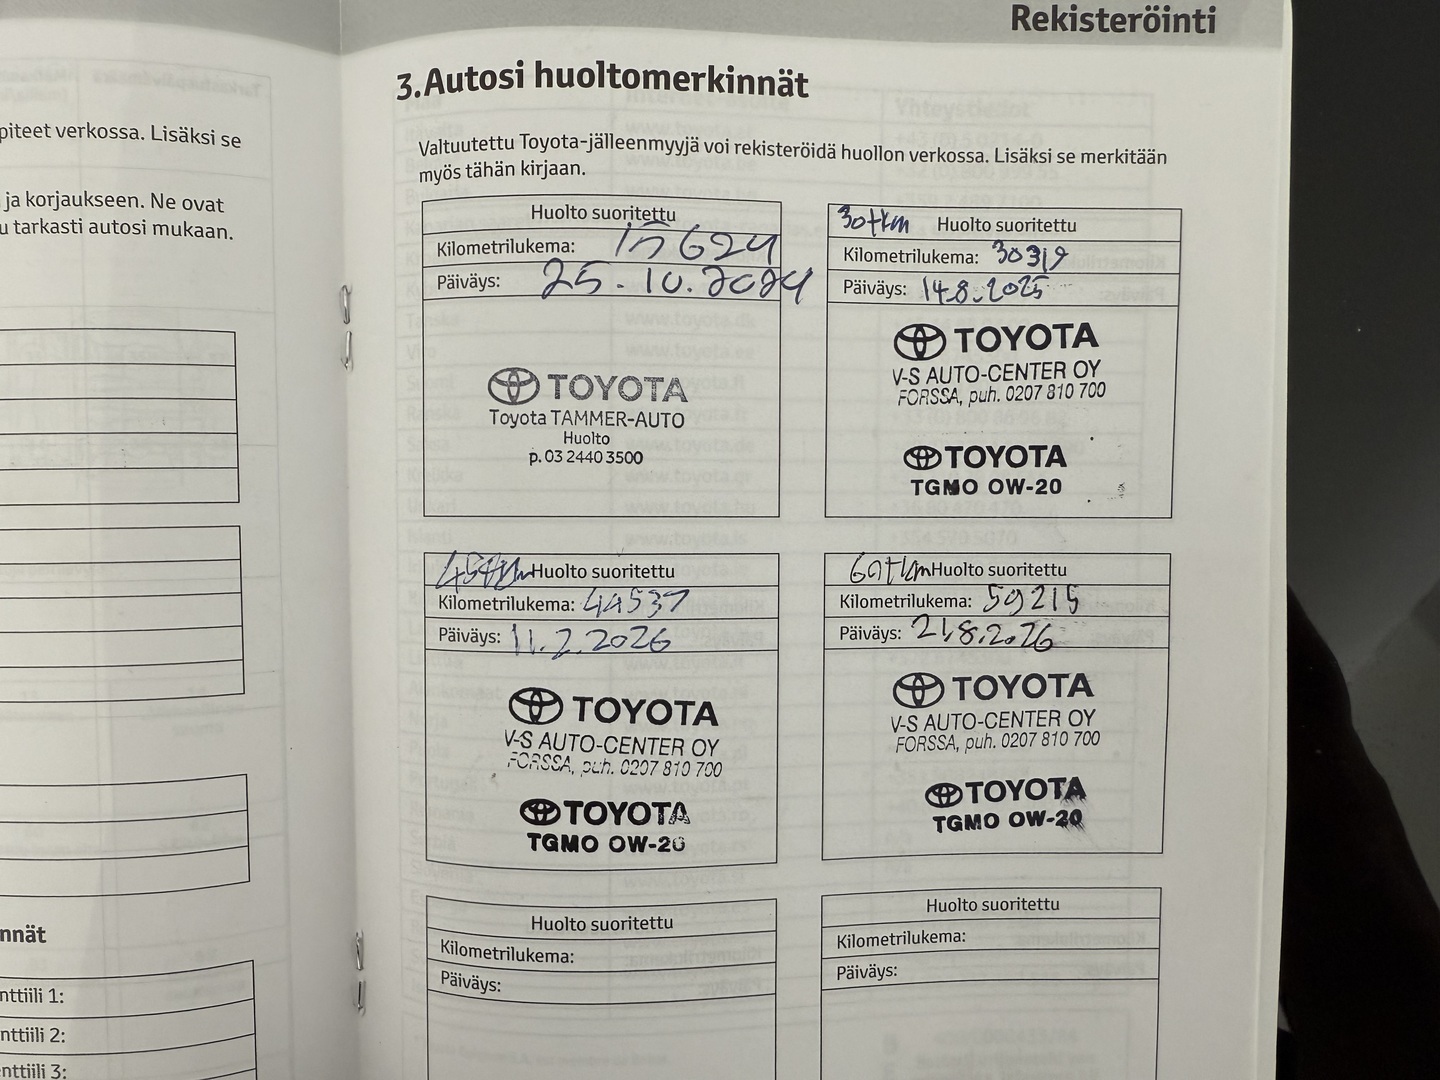 Rekisteröinti
piteet verkossa. Lisäksi se
ja korjaukseen. Ne ovat
u tarkasti autosi mukaan.
nnät
nttiili 1:
nttiili 2:
enttiili 3:
3. Autosi huoltomerkinnät
Valtuutettu Toyota-jälleenmyyjä voi rekisteröidä huollon verkossa. Lisäksi se merkitään
myös tähän kirjaan.
Huolto suoritettu
Kilometrilukema: 15624
Päiväys: 25.10.2024
TOYOTA
Toyota TAMMER-AUTO
Huolto
p. 03 2440 3500
30tkm Huolto suoritettu
Kilometrilukema: 30319
Päiväys: 14.8.2025
TOYOTA
V-S AUTO-CENTER OY
FORSSA, puh. 0207 810 700
TOYOTA
TGMO 0W-20
45tkm Huolto suoritettu
Kilometrilukema: 44537
Päiväys: 11.2.2026
TOYOTA
V-S AUTO-CENTER OY
FORSSA, puh. 0207 810 700
TOYOTA
TGMO 0W-20
60tkm Huolto suoritettu
Kilometrilukema: 59215
Päiväys: 21.8.2026
TOYOTA
V-S AUTO-CENTER OY
FORSSA, puh. 0207 810 700
TOYOTA
TGMO 0W-20
Huolto suoritettu
Kilometrilukema:
Päiväys:
Huolto suoritettu
Kilometrilukema:
Päiväys: